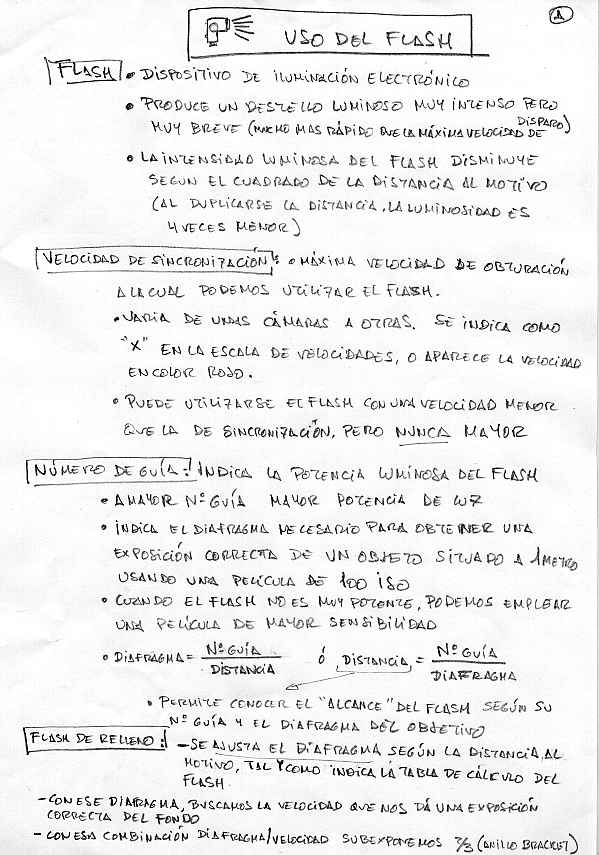 1
USO DEL FLASH
FLASH • DISPOSITIVO DE ILUMINACIÓN ELECTRÓNICO
• PRODUCE UN DESTELLO LUMINOSO MUY INTENSO PERO
MUY BREVE (MUCHO MAS RÁPIDO QUE LA MÁXIMA VELOCIDAD DE DISPARO)
• LA INTENSIDAD LUMINOSA DEL FLASH DISMINUYE
SEGUN EL CUADRADO DE LA DISTANCIA AL MOTIVO
(AL DUPLICARSE LA DISTANCIA, LA LUMINOSIDAD ES
4 VECES MENOR)
VELOCIDAD DE SINCRONIZACIÓN: • MÁXIMA VELOCIDAD DE OBTURACIÓN
A LA CUAL PODEMOS UTILIZAR EL FLASH.
• VARIA DE UNAS CÁMARAS A OTRAS. SE INDICA COMO
"X" EN LA ESCALA DE VELOCIDADES, O APARECE LA VELOCIDAD
EN COLOR ROJO.
• PUEDE UTILIZARSE EL FLASH CON UNA VELOCIDAD MENOR
QUE LA DE SINCRONIZACIÓN, PERO NUNCA MAYOR
NÚMERO DE GUÍA: INDICA LA POTENCIA LUMINOSA DEL FLASH
• A MAYOR Nº GUÍA MAYOR POTENCIA DE LUZ
• INDICA EL DIAFRAGMA NECESARIO PARA OBTENER UNA
EXPOSICIÓN CORRECTA DE UN OBJETO SITUADO A 1 METRO
USANDO UNA PELÍCULA DE 100 ISO
• CUANDO EL FLASH NO ES MUY POTENTE, PODEMOS EMPLEAR
UNA PELÍCULA DE MAYOR SENSIBILIDAD
• DIAFRAGMA = Nº GUÍA / DISTANCIA ó DISTANCIA = Nº GUÍA / DIAFRAGMA
• PERMITE CONOCER EL "ALCANCE" DEL FLASH SEGÚN SU
Nº GUÍA Y EL DIAFRAGMA DEL OBJETIVO
FLASH DE RELLENO: - SE AJUSTA EL DIAFRAGMA SEGÚN LA DISTANCIA AL
MOTIVO, TAL Y COMO INDICA LA TABLA DE CÁLCULO DEL
FLASH
- CON ESE DIAFRAGMA, BUSCAMOS LA VELOCIDAD QUE NOS DÁ UNA EXPOSICIÓN
CORRECTA DEL FONDO
- CON ESA COMBINACIÓN DIAFRAGMA/VELOCIDAD SUBEXPONEMOS (ANILLO BRACKET)